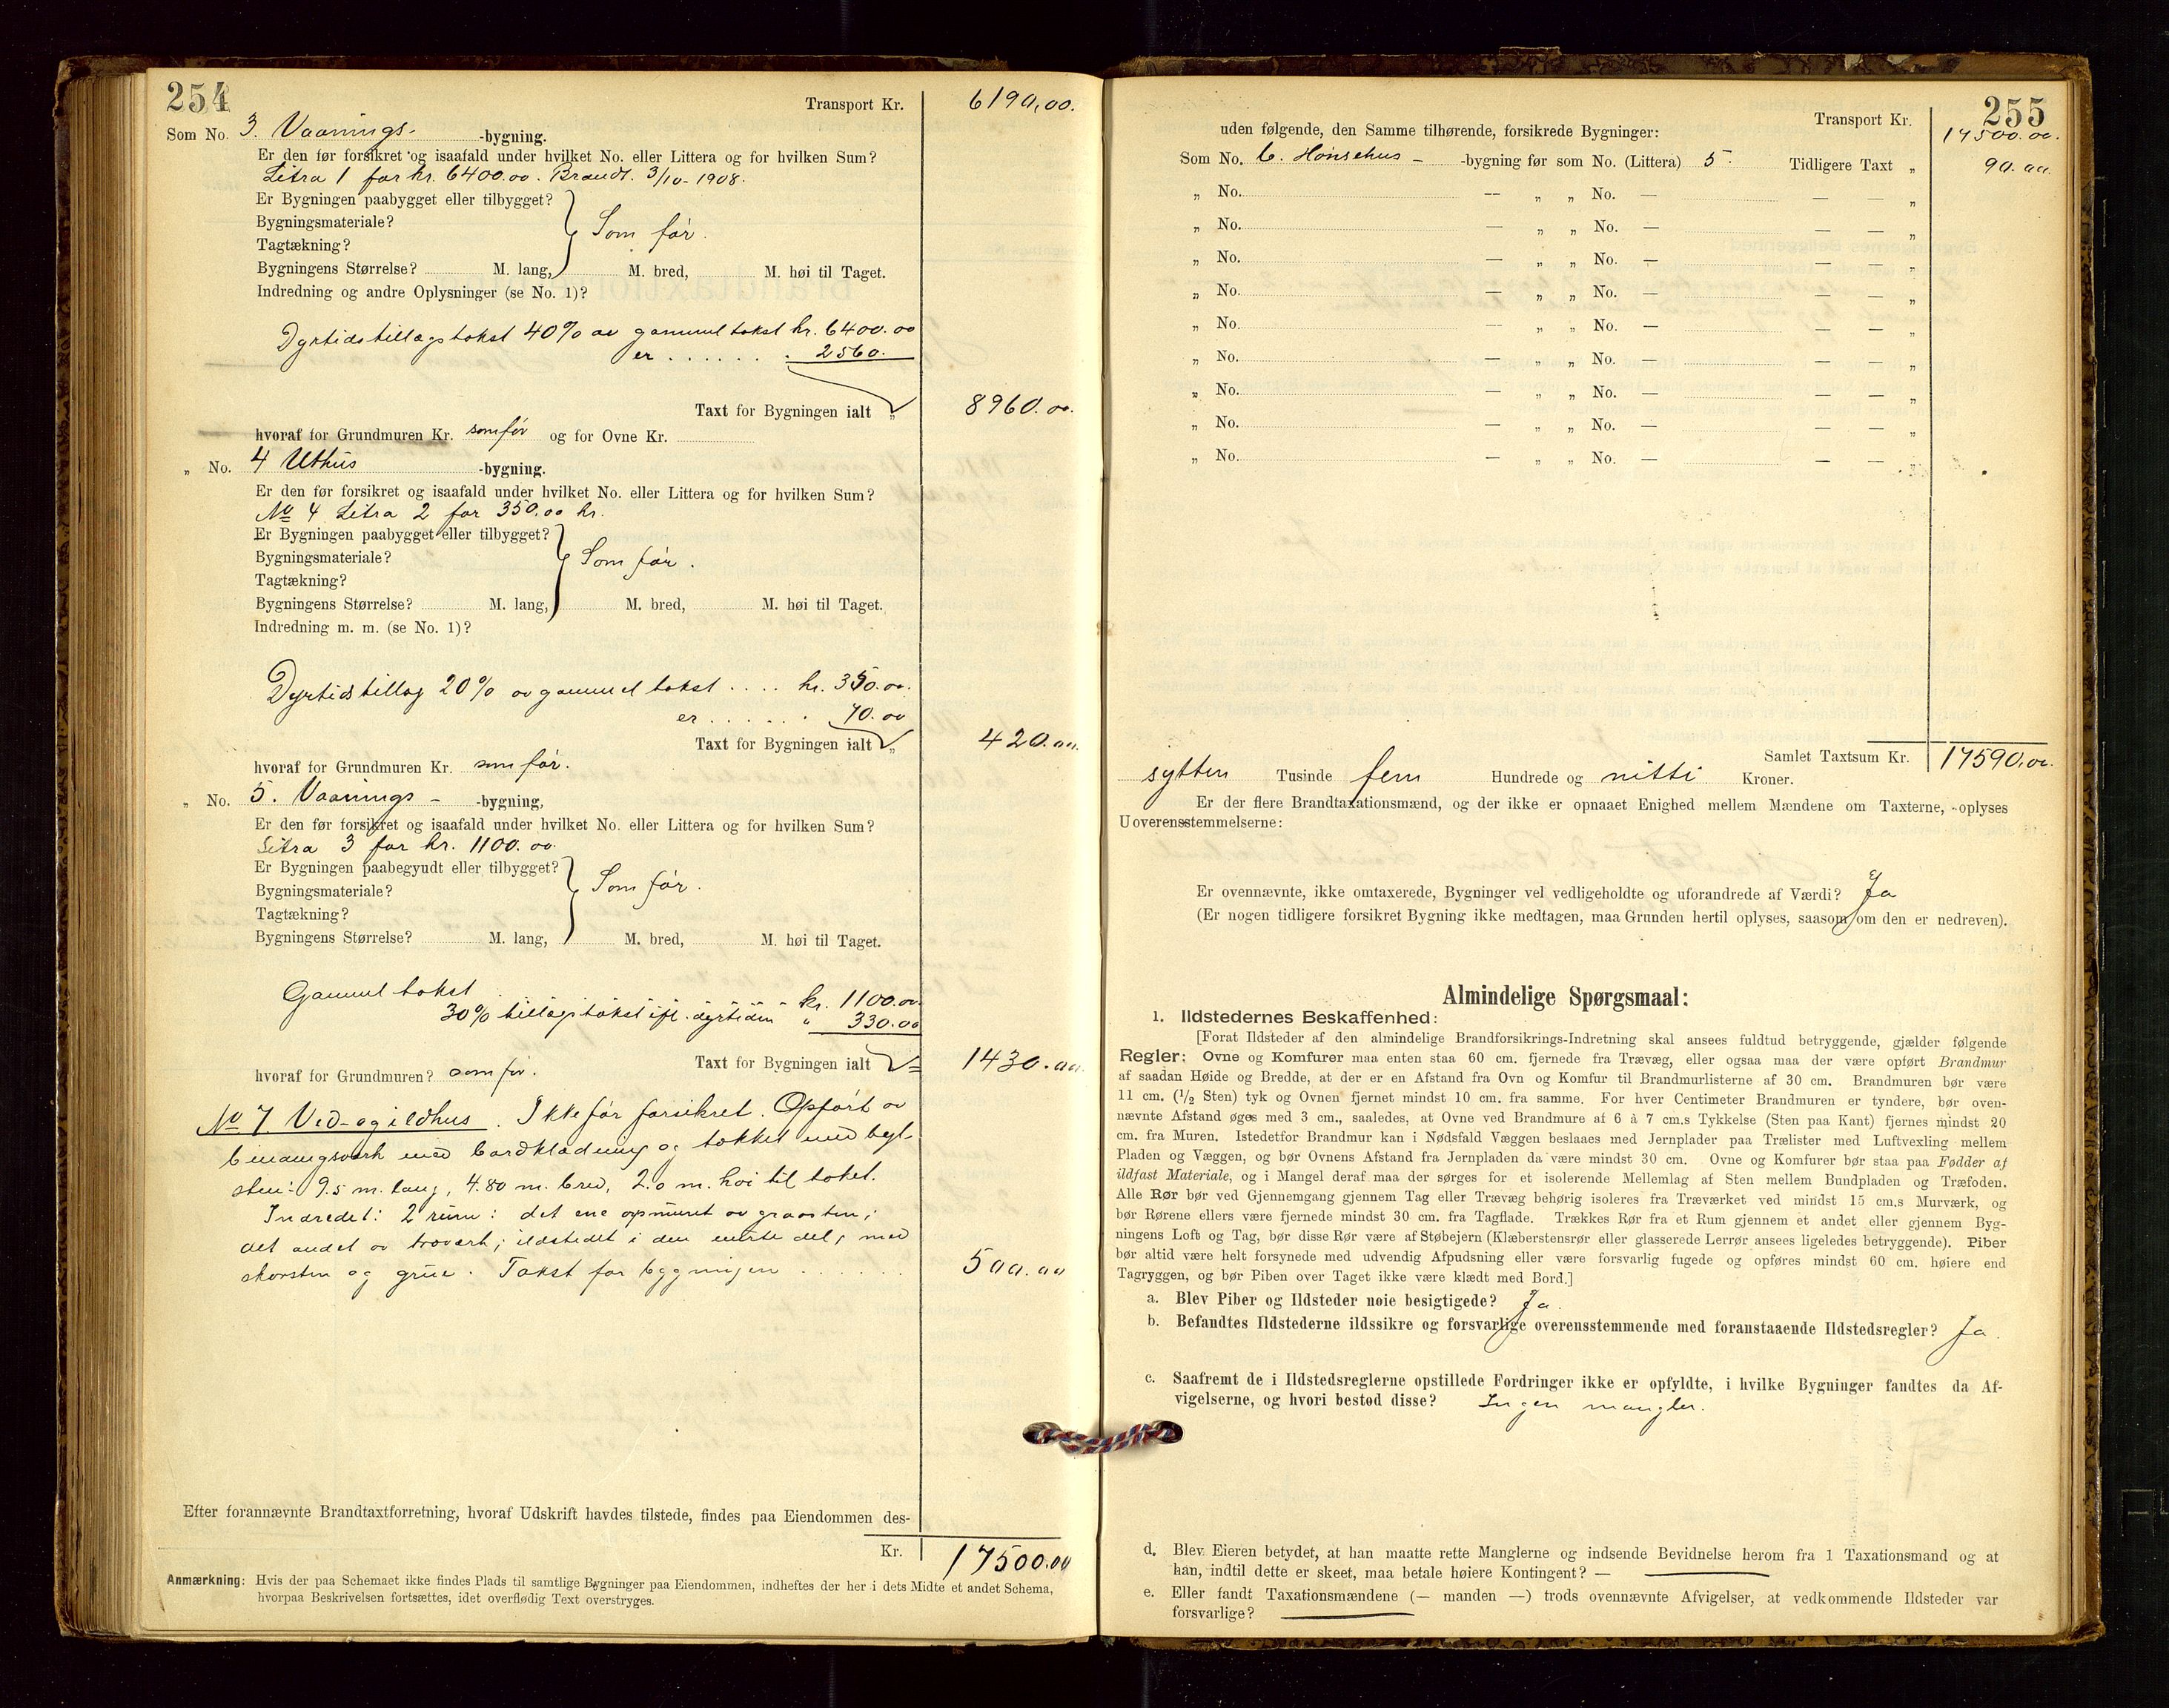 254
Transport Kr. 6190,00.
Som No. 3. Vaanings- -bygning.
Er den før forsikret og isaafald under hvilket No. eller Littera og for hvilken Sum?
Litra 1 for kr. 6400.00. Brandt. 3/10-1908.
Er Bygningen paabygget eller tilbygget?
Bygningsmateriale? Som før.
Tagtækning?
Bygningens Størrelse? M. lang, M. bred, M. høi til Taget.
Indredning og andre Oplysninger (se No. 1)?
Dyrtidstillægstakst 40% av gammel takst kr. 6400.00
er . . . . . . . 2560.
Taxt for Bygningen ialt „ 8960.00.
hvoraf for Grundmuren Kr. som før og for Ovne Kr.
„ No. 4 Uthus -bygning.
Er den før forsikret og isaafald under hvilket No. eller Littera og for hvilken Sum?
No 4 Litra 2 for 350.00 kr.
Er Bygningen paabygget eller tilbygget?
Bygningsmateriale? Som før.
Tagtækning?
Bygningens Størrelse? M. lang, M. bred, M. høi til Taget.
Indredning m. m. (se No. 1)?
Dyrtidstillæg 20% av gammel takst . . . . kr. 350.00.
er . . . . . . 70.00
Taxt for Bygningen ialt „ 420.00.
hvoraf for Grundmuren Kr. som før.
„ No. 5. Vaanings- -bygning,
Er den før forsikret og isaafald under hvilket No. eller Littera og for hvilken Sum?
Litra 3 for kr. 1100.00.
Er Bygningen paabegyndt eller tilbygget?
Bygningsmateriale? Som før.
Tagtækning?
Bygningens Størrelse? M. lang, M. bred, M. høi til Taget.
Gammel takst kr. 1100.00
30% tillægstakst ifl. dyrtiden " 330.00
Taxt for Bygningen ialt „ 1430.00.
hvoraf for Grundmuren? som før.
No 7 Ved-og ildhus. Ikke før forsikret. Opført av
bindingsverk med bordklædning og tækket med
sten: 9.5 m. lang, 4.80 m. bred, 2.0 m. høi til taket.
Indredet: 2 rum: det ene opmuret av graasten;
det andet av træverk; ildstedet i den murte del, med
skorsten og grue. Takst for bygningen . . . . . . 500.00
Efter forannævnte Brandtaxtforretning, hvoraf Udskrift havdes tilstede, findes paa Eiendommen des-
Kr. 17500.00
Anmærkning: Hvis der paa Schemaet ikke findes Plads til samtlige Bygninger paa Eiendommen, indheftes der her i dets Midte et andet Schema,
hvorpaa Beskrivelsen fortsættes, idet overflødig Text overstryges.
255
Transport Kr. 17500.00.
uden følgende, den Samme tilhørende, forsikrede Bygninger:
Som No. 6. Hønsehus - -bygning før som No. (Littera) 5. Tidligere Taxt „ 90.00.
„ No. — „ „ No. — — — „
„ No. — „ „ No. — — — „
„ No. — „ „ No. — — — „
„ No. — „ „ No. — — — „
„ No. — „ „ No. — — — „
„ No. — „ „ No. — — — „
„ No. — „ „ No. — — — „
„ No. — „ „ No. — — — „
„ No. — „ „ No. — — — „
Samlet Taxtsum Kr. 17590,00.
sytten Tusinde fem Hundrede og nitti Kroner.
Er der flere Brandtaxationsmænd, og der ikke er opnaaet Enighed mellem Mændene om Taxterne, oplyses
Uoverensstemmelserne:
Er ovennævnte, ikke omtaxerede, Bygninger vel vedligeholdte og uforandrede af Værdi? Ja
(Er nogen tidligere forsikret Bygning ikke medtagen, maa Grunden hertil oplyses, saasom om den er nedreven).
Almindelige Spørgsmaal:
1. Ildstedernes Beskaffenhed:
[Forat Ildsteder af den almindelige Brandforsikrings-Indretning skal ansees fuldtud betryggende, gjælder følgende
Regler: Ovne og Komfurer maa enten staa 60 cm. fjernede fra Trævæg, eller ogsaa maa der være opført Brandmur
af saadan Høide og Bredde, at der er en Afstand fra Ovn og Komfur til Brandmurlisterne af 30 cm. Brandmuren bør være
11 cm. (1/2 Sten) tyk og Ovnen fjernet mindst 10 cm. fra samme. For hver Centimeter Brandmuren er tyndere, bør oven-
nævnte Afstand øges med 3 cm., saaledes, at Ovne ved Brandmure af 6 à 7 cm.s Tykkelse (Sten paa Kant) fjernes mindst 20
cm. fra Muren. Istedetfor Brandmur kan i Nødsfald Væggen beslaaes med Jernplader paa Trælister med Luftvexling mellem
Pladen og Væggen, og bør Ovnens Afstand fra Jernpladen da være mindst 30 cm. Ovne og Komfurer bør staa paa Fødder af
ildfast Materiale, og i Mangel deraf maa der sørges for et isolerende Mellemlag af Sten mellem Bundpladen og Træfoden.
Alle Rør bør ved Gjennemgang gjennem Tag eller Trævæg behørig isoleres fra Træværket ved mindst 15 cm.s Murværk, og
bør Rørene ellers være fjernede mindst 30 cm. fra Tagflade. Trækkes Rør fra et Rum gjennem et andet eller gjennem Byg-
ningens Loft og Tag, bør disse Rør være af Støbejern (Klæberstensrør eller glasserede Lerrør ansees ligeledes betryggende). Piber
bør altid være helt forsynede med udvendig Afpudsning eller være forsvarlig fugede og opføres mindst 60 cm. høiere end
Tagryggen, og bør Piben over Taget ikke være klædt med Bord.]
a. Blev Piber og Ildsteder nøie besigtigede? Ja.
b. Befandtes Ildstederne ildssikre og forsvarlige overensstemmende med foranstaaende Ildstedsregler? Ja.
c. Saafremt de i Ildstedsreglerne opstillede Fordringer ikke er opfyldte, i hvilke Bygninger fandtes da Af-
vigelserne, og hvori bestod disse? Ingen mangler.
d. Blev Eieren betydet, at han maatte rette Manglerne og indsende Bevidnelse herom fra 1 Taxationsmand og at
han, indtil dette er skeet, maa betale høiere Kontingent? —
e. Eller fandt Taxationsmændene (— manden —) trods ovennævnte Afvigelser, at vedkommende Ildsteder var
forsvarlige?